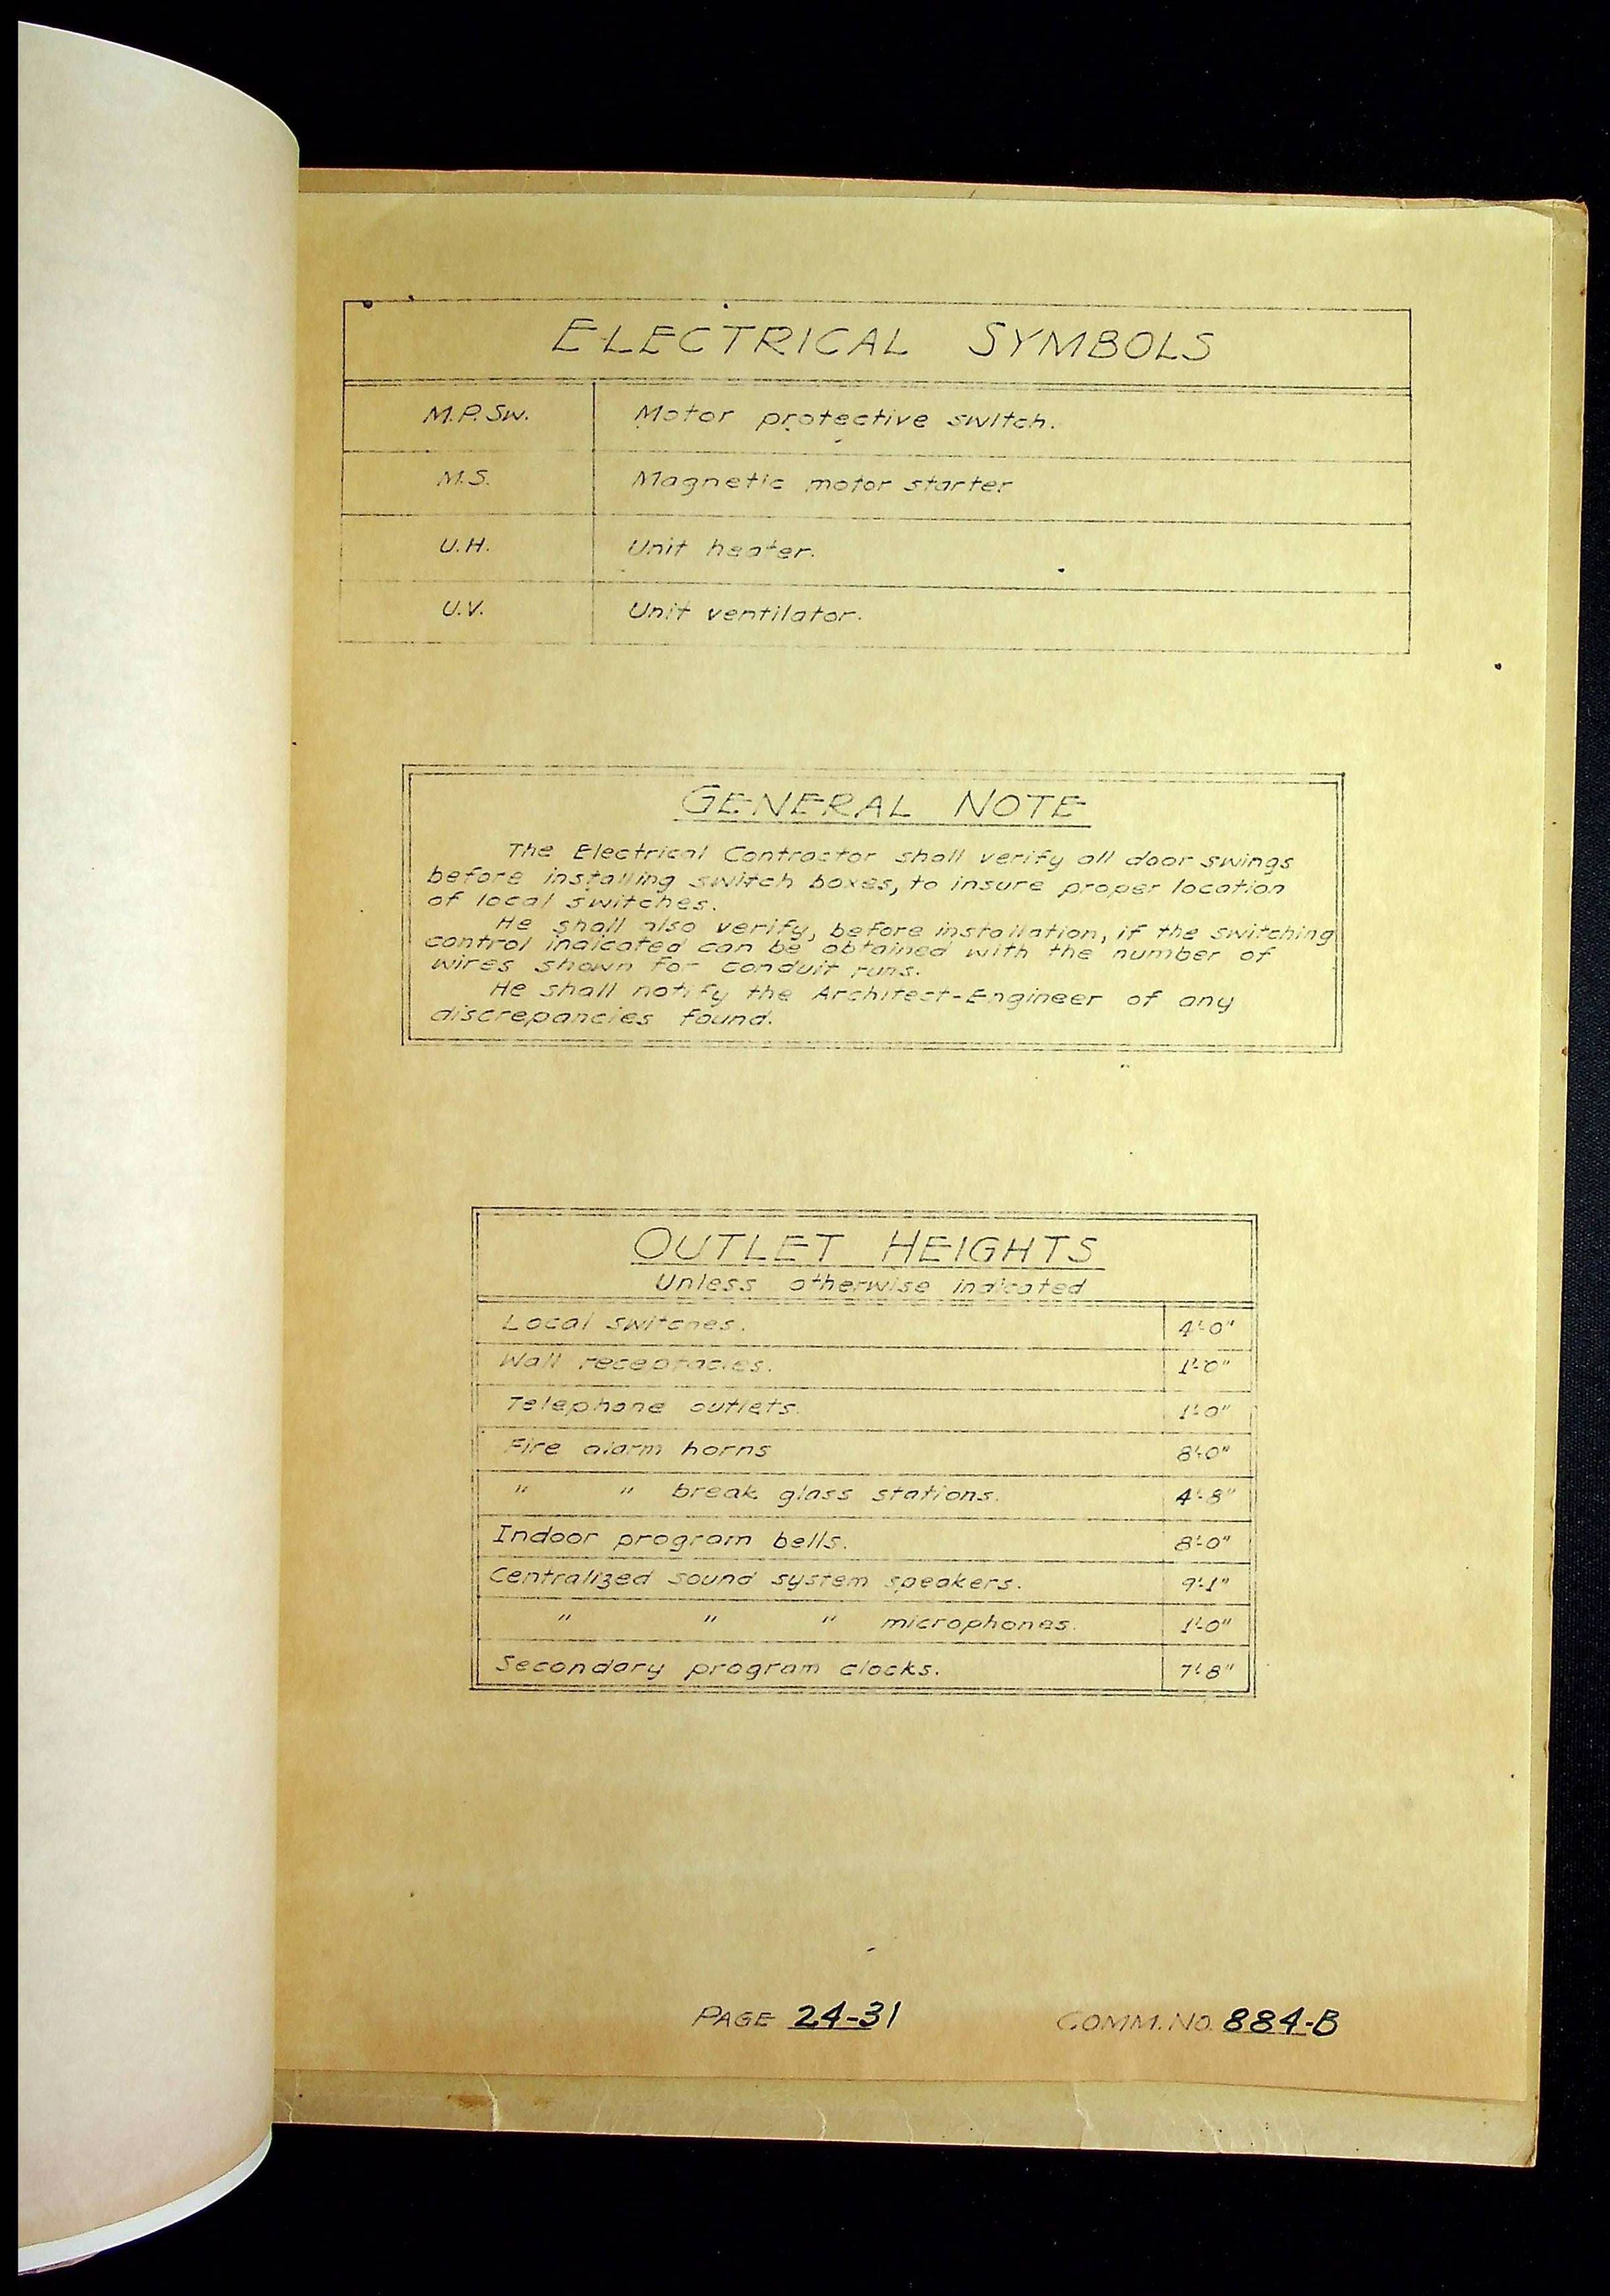 ELECTRICAL SYMBOLS
M.P. Sw. Motor protective switch.
M.S. Magnetic motor starter
U.H. Unit heater.
U.V. Unit ventilator.
GENERAL NOTE
The Electrical Contractor shall verify all door swings
before installing switch boxes, to insure proper location
of local switches.
He shall also verify, before installation, if the switching
control indicated can be obtained with the number of
wires shown for conduit runs.
He shall notify the Architect-Engineer of any
discrepancies found.
OUTLET HEIGHTS
Unless otherwise indicated
Local switches. 4'-0"
Wall receptacles. 1'-0"
Telephone outlets. 1'-0"
Fire alarm horns 8'-0"
" " break glass stations. 4'-8"
Indoor program bells. 8'-0"
Centralized sound system speakers. 9'-1"
" " " microphones. 1'-0"
Secondary program clocks. 7'-8"
PAGE 24-31 COMM. NO. 884-B